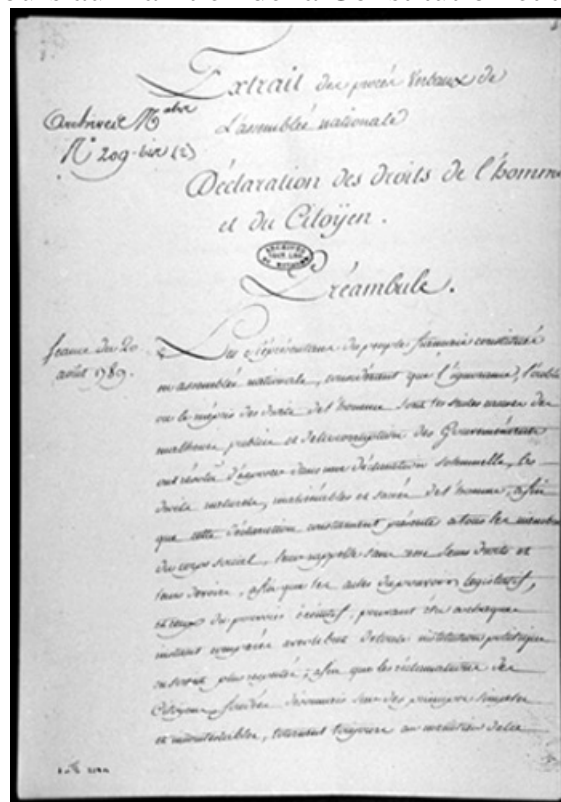 Extrait des procès Verbaux de
L'assemblée nationale
N° 209-bis (2)
Déclaration des droits de l'homme
et du Citoÿen.
ARCHIVES
Préambule.
Séance du 20
août 1789.
Les Représentans du peuple français constitués
en assemblée nationale, considérant que l'ignorance, l'oubli
ou le mépris des droits de l'homme sont les seules causes des
malheurs publics et de la corruption des Gouvernémens
ont résolu d'exposer dans une déclaration solemnelle, les
droits naturels, inaliénables et sacrés de l'homme, afin
que cette déclaration constament présente à tous les membres
du corps social, leur rappelle sans cesse leurs droits et
leurs devoirs, afin que les actes du pouvoir législatif,
et ceux du pouvoir éxécutif, pouvant être à chaque
instant comparés avec le but de toute institution politique
en soient plus respectés; afin que les réclamations des
Citoyens, fondées désormais sur des principes simples
et incontestables, tournent toujours au maintien de la